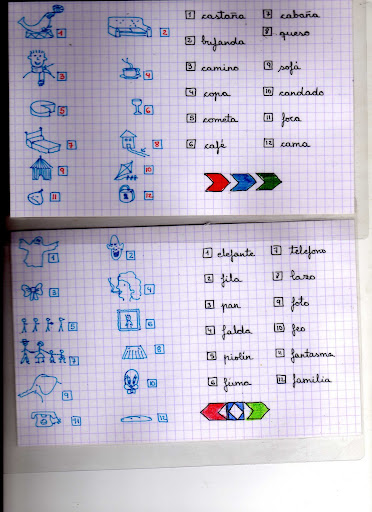 1 2
3 4
5 6
7 8
9 10
11 12
1 castaña
2 bufanda
3 camino
4 copa
5 cometa
6 café
7 cabaña
8 queso
9 sofá
10 candado
11 foca
12 cama
1 2
3 4
5 6
7 8
9 10
11 12
1 elefante
2 fila
3 pan
4 falda
5 piolín
6 fuma
7 teléfono
8 lazo
9 foto
10 feo
11 fantasma
12 familia